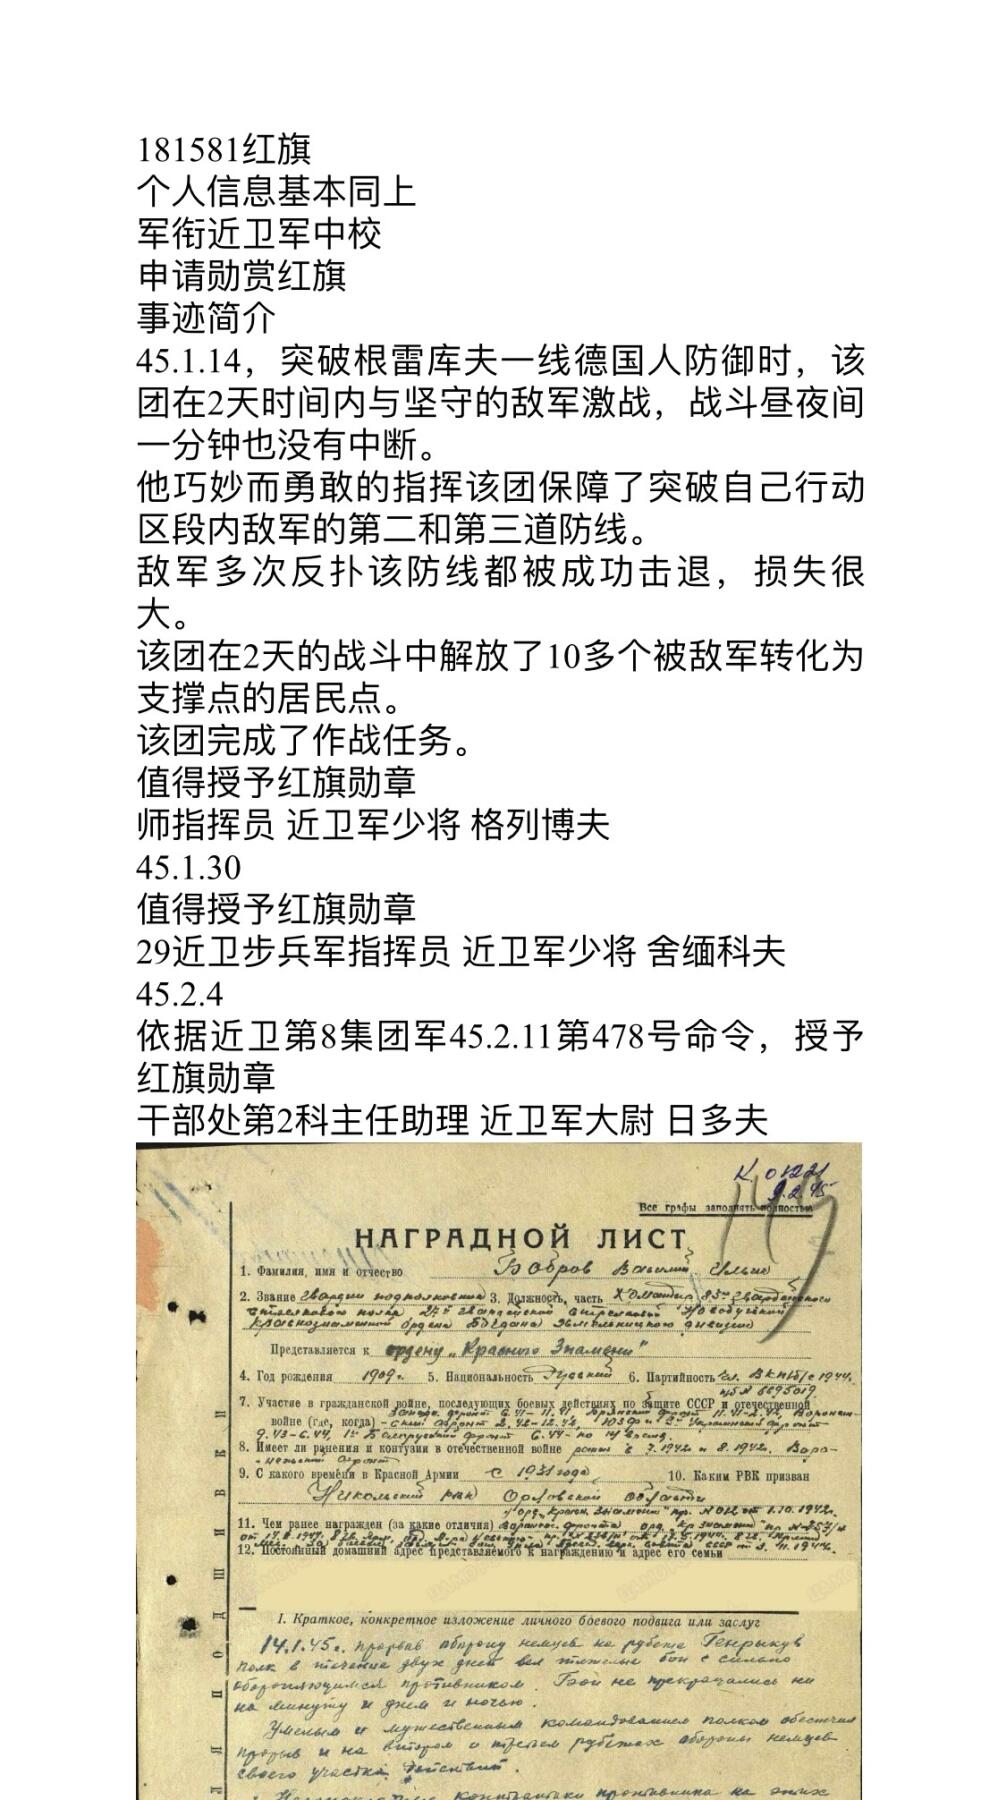 181581红旗
个人信息基本同上
军衔近卫军中校
申请勋赏红旗
事迹简介
45.1.14，突破根雷库夫一线德国人防御时，该
团在2天时间内与坚守的敌军激战，战斗昼夜间
一分钟也没有中断。
他巧妙而勇敢的指挥该团保障了突破自己行动
区段内敌军的第二和第三道防线。
敌军多次反扑该防线都被成功击退，损失很
大。
该团在2天的战斗中解放了10多个被敌军转化为
支撑点的居民点。
该团完成了作战任务。
值得授予红旗勋章
师指挥员 近卫军少将 格列博夫
45.1.30
值得授予红旗勋章
29近卫步兵军指挥员 近卫军少将 舍缅科夫
45.2.4
依据近卫第8集团军45.2.11第478号命令，授予
红旗勋章
干部处第2科主任助理 近卫军大尉 日多夫
9.2.45
149
Все графы заполнять полностью
НАГРАДНОЙ ЛИСТ
1. Фамилия, имя и отчество Бобров Василий Ильич
2. Звание Гвардии подполковник 3. Должность, часть Командир 85го гвардейского
стрелкового полка 27й гвардейской стрелковой Новобугской
Краснознаменной ордена Богдана Хмельницкого дивизии
Представляется к ордену „Красного Знамени"
4. Год рождения 1909г. 5. Национальность Русский 6. Партийность чл. ВКП(б) с 1944г.
п/б N
7. Участие в гражданской войне, последующих боевых действиях по защите СССР и отечественной
войне (где, когда)
9.43-6.44, 1й Белорусский фронт 6.44- по
8. Имеет ли ранения и контузии в отечественной войне ранен в 7.1942 и 8.1942. Воро-
нежский фронт
9. С какого времени в Красной Армии с 1931 года 10. Каким РВК призван
Никольский рвк Орловской области
11. Чем ранее награжден (за какие отличия)
12. Постоянный домашний адрес представляемого к награждению и адрес его семьи
I. Краткое, конкретное изложение личного боевого подвига или заслуг
14.1.45г. прорвав оборону немцев на рубеже Генрыкув
полк в течение двух дней вел тяжелые бои с сильно
обороняющимся противником. Бои не прекращались ни
на минуту и днем и ночью.
Умелым и мужественным командованием полком обеспечил
прорыв и на втором и третьем рубежах обороны немцев
своего участка действий.
контратаки противника на этих